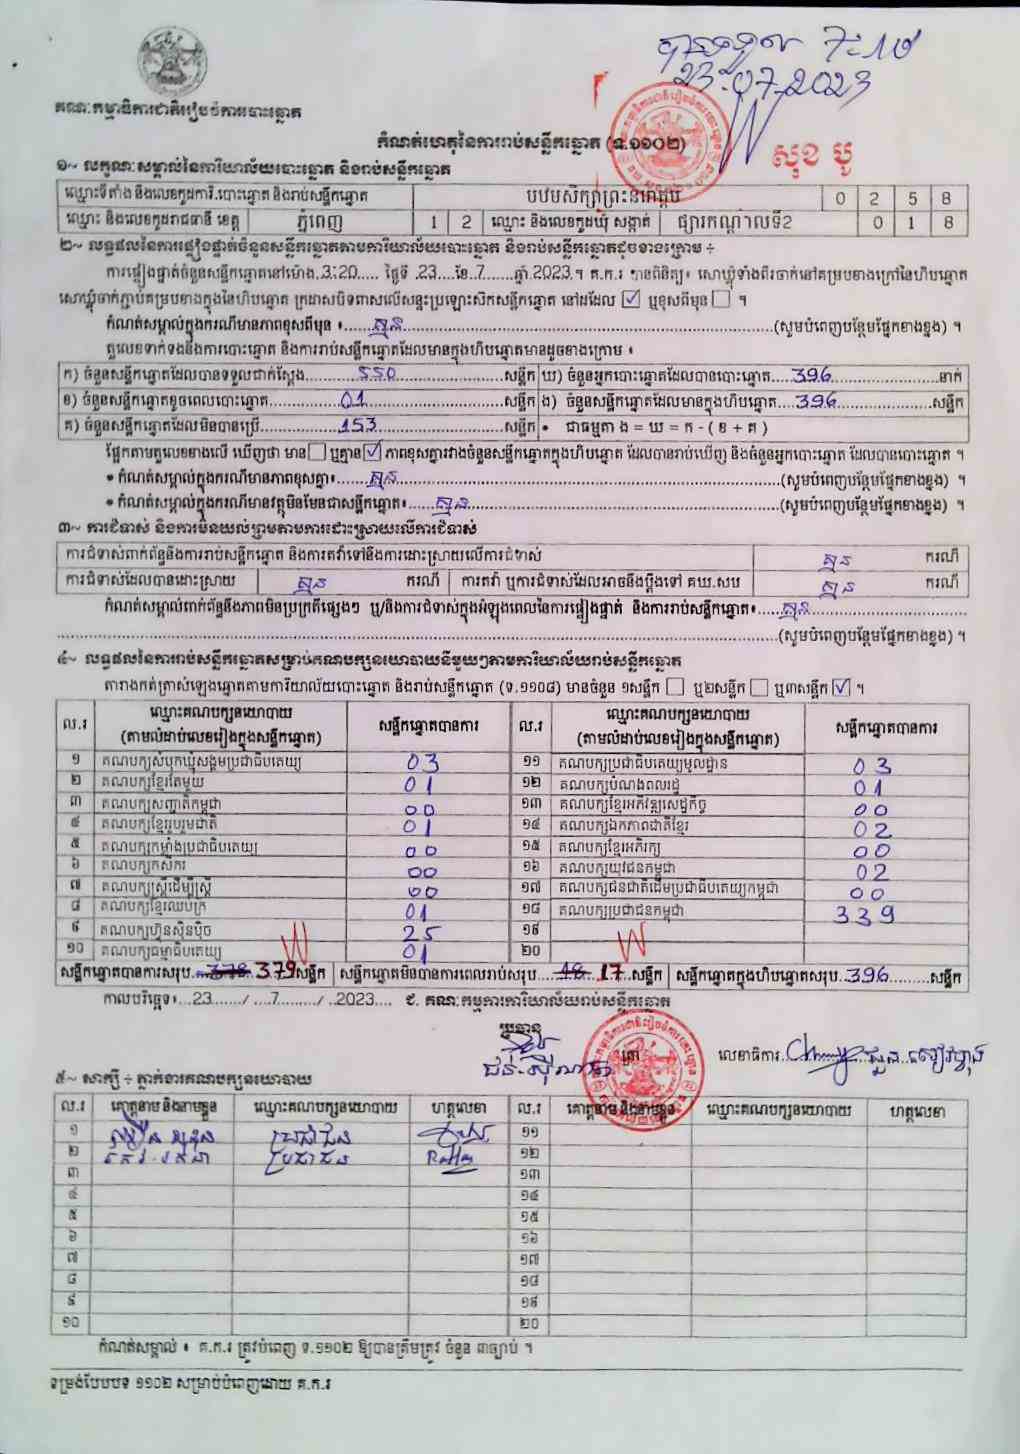 បានទទួល 7:10
23-07-2023
គណៈកម្មាធិការជាតិរៀបចំការបោះឆ្នោត
កំណត់ហេតុនៃការរាប់សន្លឹកឆ្នោត (ទ.១១០២)
សុខ បូ
១~ លក្ខណៈសម្គាល់នៃការិយាល័យបោះឆ្នោត និងរាប់សន្លឹកឆ្នោត
ឈ្មោះទីតាំង និងលេខកូដការិ.បោះឆ្នោត និងរាប់សន្លឹកឆ្នោត បឋមសិក្សាព្រះនរោត្តម 0 2 5 8
ឈ្មោះ និងលេខកូដរាជធានី ខេត្ត ភ្នំពេញ 1 2 ឈ្មោះ និងលេខកូដឃុំ សង្កាត់ ផ្សារកណ្តាលទី2 0 1 8
២~ លទ្ធផលនៃការផ្ទៀងផ្ទាត់ចំនួនសន្លឹកឆ្នោតតាមការិយាល័យបោះឆ្នោត និងរាប់សន្លឹកឆ្នោតដូចខាងក្រោម ÷
ការផ្ទៀងផ្ទាត់ចំនួនសន្លឹកឆ្នោតនៅម៉ោង.3:20..... ថ្ងៃទី .23....ខែ.7......ឆ្នាំ.2023.។ គ.ក.រ បានពិនិត្យ៖ សោឃ្លុំទាំងពីរចាក់នៅគម្របខាងក្រៅនៃហិបឆ្នោត
សោឃ្លុំចាក់ភ្ជាប់គម្របខាងក្នុងនៃហិបឆ្នោត ក្រដាសបិទពាសលើសន្ទះប្រឡោះសិកសន្លឹកឆ្នោត នៅដដែល ☑ ឬខុសពីមុន ☐ ។
កំណត់សម្គាល់ក្នុងករណីមានភាពខុសពីមុន ៖......គ្មាន......(សូមបំពេញបន្ថែមផ្នែកខាងខ្នង) ។
តួលេខទាក់ទងនឹងការបោះឆ្នោត និងការរាប់សន្លឹកឆ្នោតដែលមានក្នុងហិបឆ្នោតមានដូចខាងក្រោម ៖
ក) ចំនួនសន្លឹកឆ្នោតដែលបានទទួលជាក់ស្តែង.......550.......សន្លឹក ឃ) ចំនួនអ្នកបោះឆ្នោតដែលបានបោះឆ្នោត....396.......នាក់
ខ) ចំនួនសន្លឹកឆ្នោតខូចពេលបោះឆ្នោត.......01.......សន្លឹក ង) ចំនួនសន្លឹកឆ្នោតដែលមានក្នុងហិបឆ្នោត...396.......សន្លឹក
គ) ចំនួនសន្លឹកឆ្នោតដែលមិនបានប្រើ.......153.......សន្លឹក • ជាធម្មតា ង = ឃ = ក - ( ខ + គ )
ផ្អែកតាមតួលេខខាងលើ ឃើញថា មាន☐ ឬគ្មាន☑ ភាពខុសគ្នារវាងចំនួនសន្លឹកឆ្នោតក្នុងហិបឆ្នោត ដែលបានរាប់ឃើញ និងចំនួនអ្នកបោះឆ្នោត ដែលបានបោះឆ្នោត ។
• កំណត់សម្គាល់ក្នុងករណីមានភាពខុសគ្នា៖......គ្មាន......(សូមបំពេញបន្ថែមផ្នែកខាងខ្នង) ។
• កំណត់សម្គាល់ក្នុងករណីមានវត្ថុមិនមែនជាសន្លឹកឆ្នោត៖......គ្មាន......(សូមបំពេញបន្ថែមផ្នែកខាងខ្នង) ។
៣~ ការជំទាស់ និងការមិនយល់ព្រមតាមការដោះស្រាយលើការជំទាស់
ការជំទាស់ពាក់ព័ន្ធនឹងការរាប់សន្លឹកឆ្នោត និងការតវ៉ាទៅនឹងការដោះស្រាយលើការជំទាស់ គ្មាន ករណី
ការជំទាស់ដែលបានដោះស្រាយ គ្មាន ករណី ការតវ៉ា ឬការជំទាស់ដែលអាចនឹងប្តឹងទៅ គឃ.សប គ្មាន ករណី
កំណត់សម្គាល់ពាក់ព័ន្ធនឹងភាពមិនប្រក្រតីផ្សេងៗ ឬ/និងការជំទាស់ក្នុងអំឡុងពេលនៃការផ្ទៀងផ្ទាត់ និងការរាប់សន្លឹកឆ្នោត៖......គ្មាន......
......(សូមបំពេញបន្ថែមផ្នែកខាងខ្នង) ។
៤~ លទ្ធផលនៃការរាប់សន្លឹកឆ្នោតសម្រាប់គណបក្សនយោបាយនីមួយៗតាមការិយាល័យរាប់សន្លឹកឆ្នោត
តារាងកត់ត្រាសំឡេងឆ្នោតតាមការិយាល័យបោះឆ្នោត និងរាប់សន្លឹកឆ្នោត (ទ.១១០៨) មានចំនួន ១សន្លឹក ☐ ឬ២សន្លឹក ☐ ឬ៣សន្លឹក ☑ ។
ល.រ ឈ្មោះគណបក្សនយោបាយ (តាមលំដាប់លេខរៀងក្នុងសន្លឹកឆ្នោត) សន្លឹកឆ្នោតបានការ ល.រ ឈ្មោះគណបក្សនយោបាយ (តាមលំដាប់លេខរៀងក្នុងសន្លឹកឆ្នោត) សន្លឹកឆ្នោតបានការ
១ គណបក្សសំបុកឃ្មុំសង្គមប្រជាធិបតេយ្យ 03 ១១ គណបក្សប្រជាធិបតេយ្យមូលដ្ឋាន 03
២ គណបក្សខ្មែរតែមួយ 01 ១២ គណបក្សបំណងពលរដ្ឋ 01
៣ គណបក្សសញ្ជាតិកម្ពុជា 00 ១៣ គណបក្សខ្មែរអភិវឌ្ឍសេដ្ឋកិច្ច 00
៤ គណបក្សខ្មែររួបរួមជាតិ 01 ១៤ គណបក្សឯកភាពជាតិខ្មែរ 02
៥ គណបក្សកម្លាំងប្រជាធិបតេយ្យ 00 ១៥ គណបក្សខ្មែរអភិរក្ស 00
៦ គណបក្សកសិករ 00 ១៦ គណបក្សយុវជនកម្ពុជា 02
៧ គណបក្សស្ត្រីដើម្បីស្ត្រី 00 ១៧ គណបក្សជនជាតិដើមប្រជាធិបតេយ្យកម្ពុជា 00
៨ គណបក្សខ្មែរឈប់ក្រ 01 ១៨ គណបក្សប្រជាជនកម្ពុជា 339
៩ គណបក្សហ្វ៊ុនស៊ិនប៉ិច 25 ១៩
១០ គណបក្សធម្មាធិបតេយ្យ 01 ២០
សន្លឹកឆ្នោតបានការសរុប..378..379សន្លឹក សន្លឹកឆ្នោតមិនបានការពេលរាប់សរុប....18...17..សន្លឹក សន្លឹកឆ្នោតក្នុងហិបឆ្នោតសរុប.396.........សន្លឹក
កាលបរិច្ឆេទ៖...23......./....7......../..2023.... ជ. គណៈកម្មការការិយាល័យរាប់សន្លឹកឆ្នោត
ប្រធាន
លេខាធិការ
៥~ សាក្សី ÷ ភ្នាក់ងារគណបក្សនយោបាយ
ល.រ គោត្តនាម និងនាមខ្លួន ឈ្មោះគណបក្សនយោបាយ ហត្ថលេខា ល.រ គោត្តនាម និងនាមខ្លួន ឈ្មោះគណបក្សនយោបាយ ហត្ថលេខា
១ ប្រជាជន ១១
២ កែវ រតនា ប្រជាជន ១២
៣ ១៣
៤ ១៤
៥ ១៥
៦ ១៦
៧ ១៧
៨ ១៨
៩ ១៩
១០ ២០
កំណត់សម្គាល់ ៖ គ.ក.រ ត្រូវបំពេញ ទ.១១០២ ឱ្យបានត្រឹមត្រូវ ចំនួន ៣ច្បាប់ ។
ទម្រង់បែបបទ ១១០២ សម្រាប់បំពេញដោយ គ.ក.រ